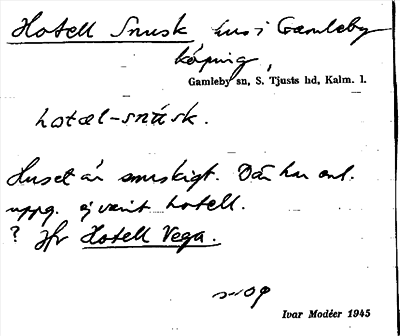 Hotell Snusk hus i Gamleby
köping,
Gamleby sn, S. Tjusts hd, Kalm. l.
hotæl-snusk.
Huset är snuskigt. Där har enl.
uppg. ej varit hotell.
? Jfr Hotell Vega.
Ivar Modéer 1945